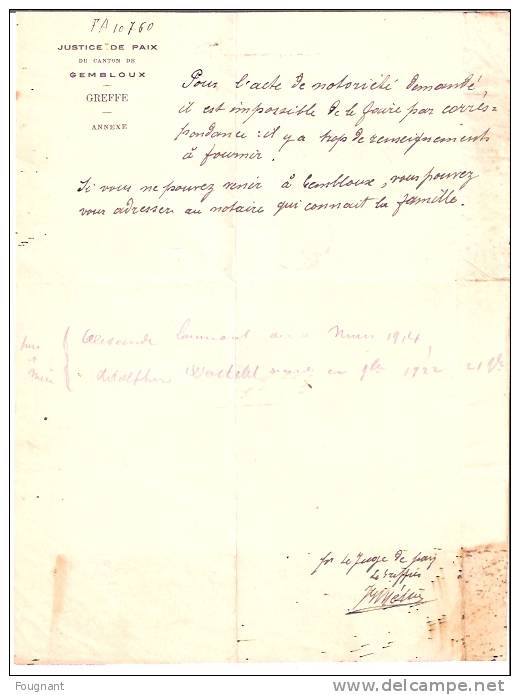 FA 10760
JUSTICE DE PAIX
DU CANTON DE
GEMBLOUX
GREFFE
ANNEXE
Pour l'acte de notoriété demandé,
il est impossible de le faire par corres=
pondance : il y a trop de renseignements
à fournir.
Si vous ne pouvez venir à Gembloux, vous pouvez
vous adresser au notaire qui connait la famille.
1914
Adolphine en 1922 21
pr le Juge de paix
Le Greffier
Fougnant
delcampe.net